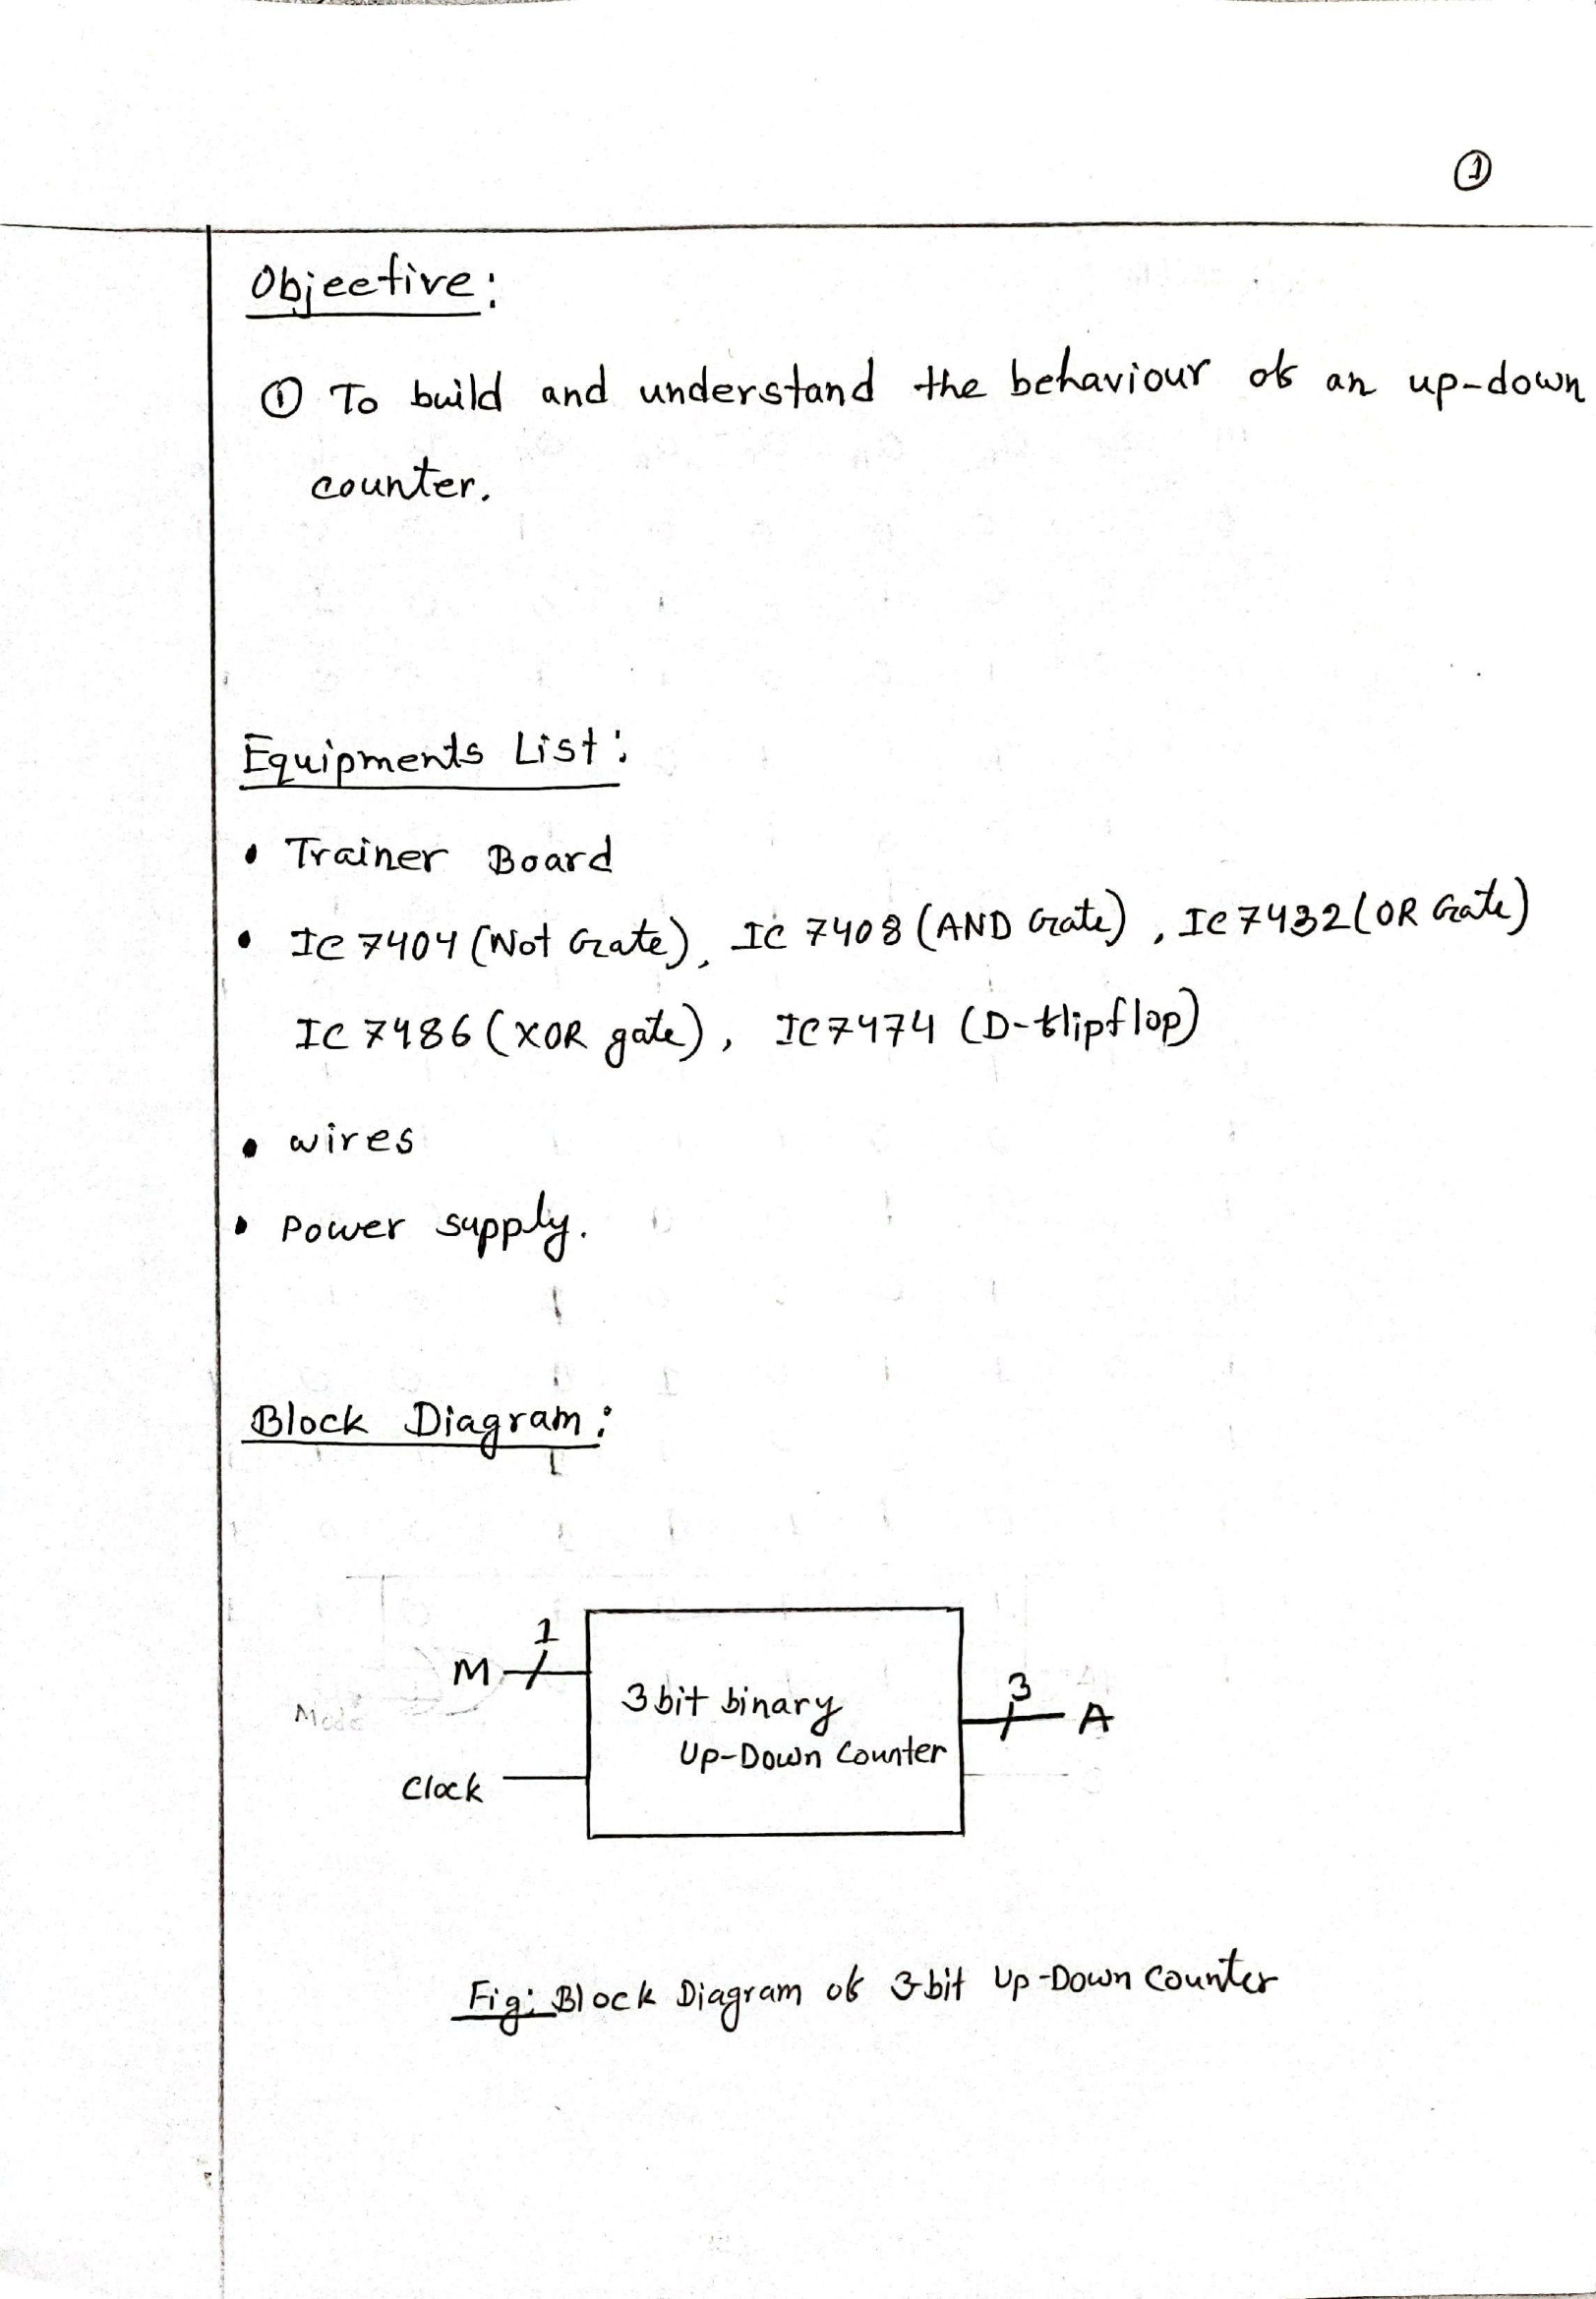 ①
Objective:
① To build and understand the behaviour of an up-down
counter.
Equipments List:
• Trainer Board
• IC 7404 (Not Gate), IC 7408 (AND Gate), IC 7432 (OR Gate)
IC 7486 (XOR gate), IC 7474 (D-flipflop)
• wires
• Power supply.
Block Diagram:
1
M
3 bit binary
Up-Down Counter
3
A
Clock
Fig: Block Diagram of 3-bit Up-Down Counter